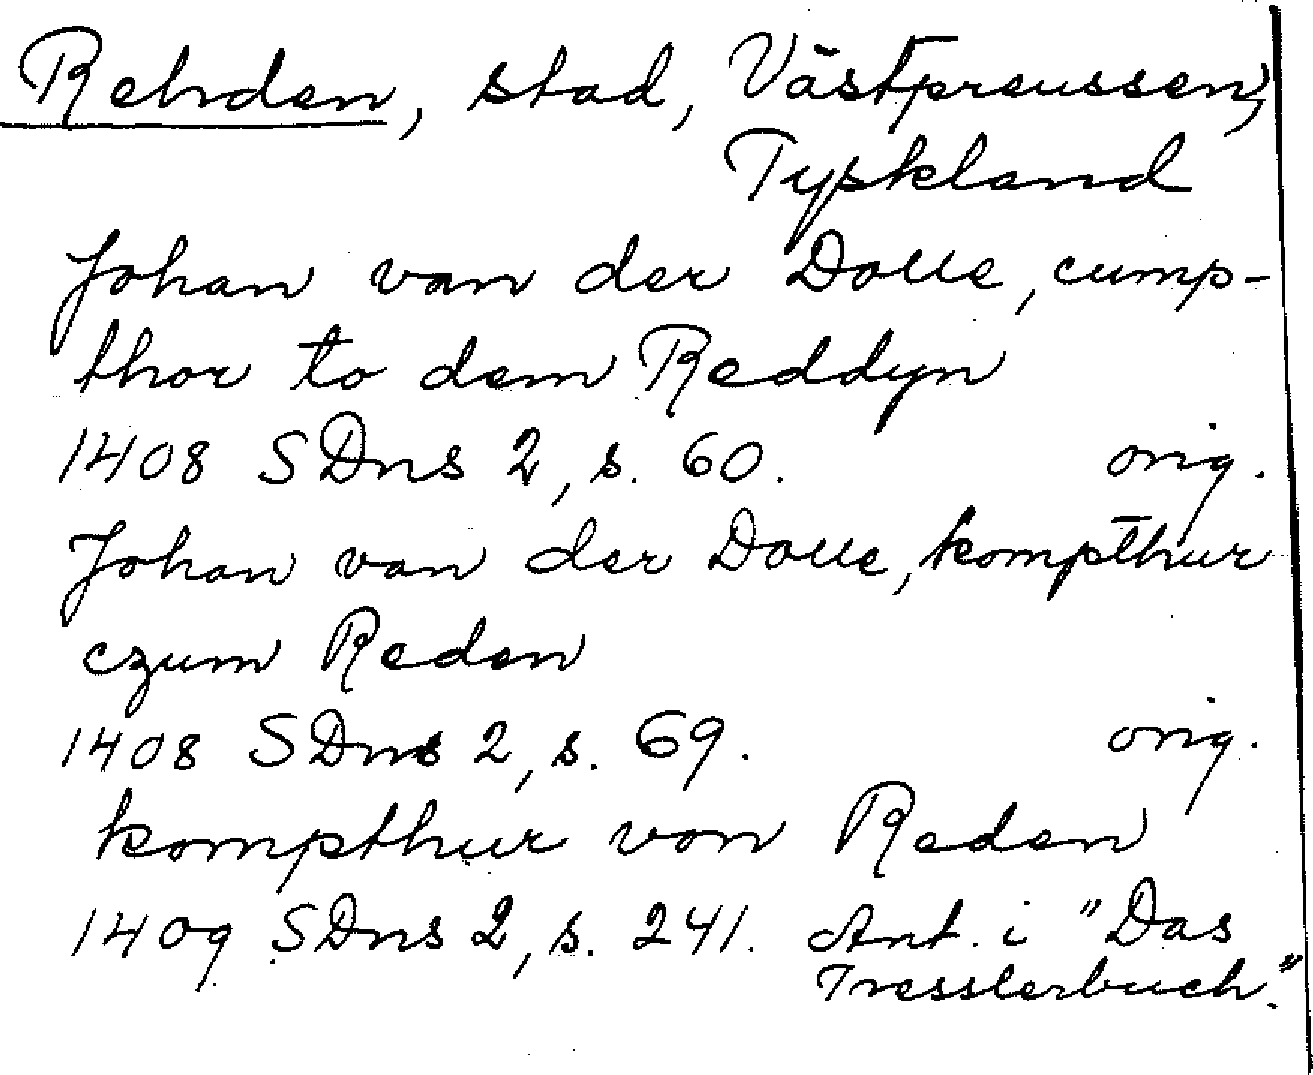 Rehden, stad, Västpreussen,
Tyskland
Johan van der Dolle, cump-
thor to dem Reddyn
1408 SDns 2, s. 60. orig.
Johan van der Dolle, kompthur
czum Reden
1408 SDns 2, s. 69. orig.
kompthur von Reden
1409 SDns 2, s. 241. Ant. i "Das
Tresslerbuch".